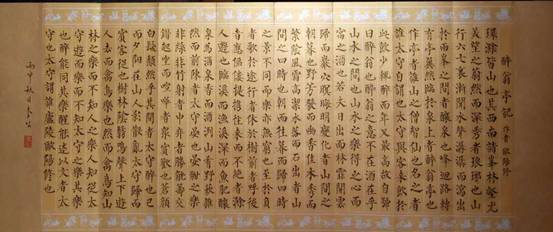 醉翁亭記 作者 歐陽修
環滁皆山也其西南諸峰林壑尤
美望之蔚然而深秀者琅琊也山
行六七裏漸聞水聲潺潺而瀉出
於兩峰之間者釀泉也峰迴路轉
有亭翼然臨於泉上者醉翁亭也
作亭者誰山之僧智仙也名之者
誰太守自謂也太守與客來飲於
此飲少輒醉而年又最高故自號
曰醉翁也醉翁之意不在酒在乎
山水之間也山水之樂得之心而
寓之酒也若夫日出而林霏開雲
歸而巖穴暝晦明變化者山間之
朝暮也野芳發而幽香佳木秀而
繁陰風霜高潔水落而石出者山
間之四時也朝而往暮而歸四時
之景不同而樂亦無窮也至於負
者歌於途行者休於樹前者呼後
者應傴僂提攜往來而不絕者滁
人遊也臨溪而漁溪深而魚肥釀
泉為酒泉香而酒洌山肴野蔌雜
然而前陳者太守宴也宴酣之樂
非絲非竹射者中弈者勝觥籌交
錯起坐而喧嘩者眾賓歡也蒼顏
白髮頹然乎其間者太守醉也已
而夕陽在山人影散亂太守歸而
賓客從也樹林陰翳鳴聲上下遊
人去而禽鳥樂也然而禽鳥知山
林之樂而不知人之樂人知從太
守遊而樂而不知太守之樂其樂
也醉能同其樂醒能述以文者太
守也太守謂誰廬陵歐陽修也
丙申秋日